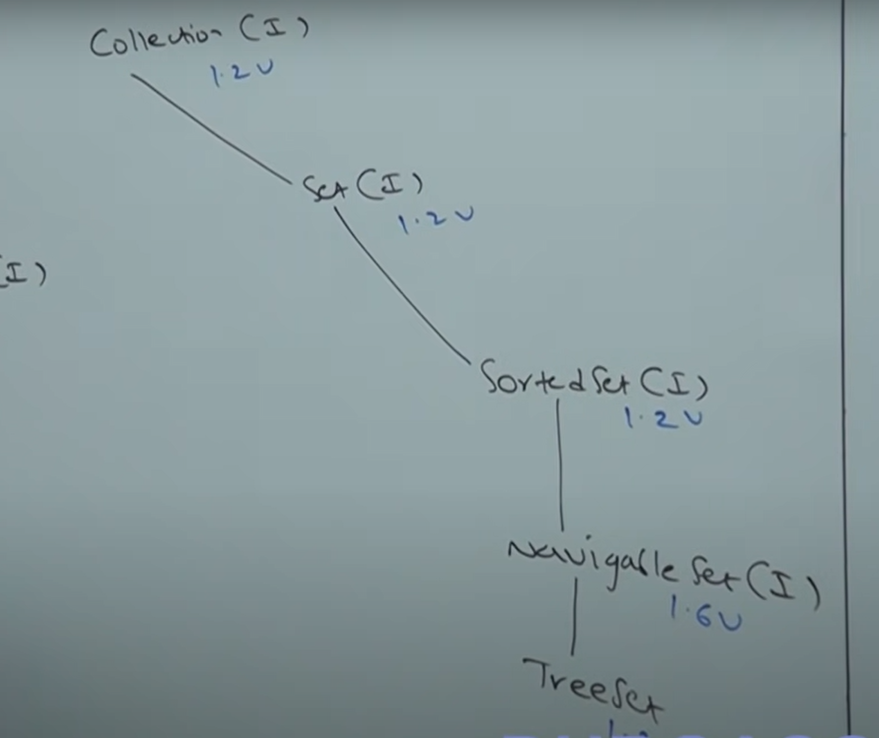 Collection (I)
1.2 V
Set (I)
1.2 V
(I)
SortedSet (I)
1.2 V
Navigable Set (I)
1.6 V
TreeSet